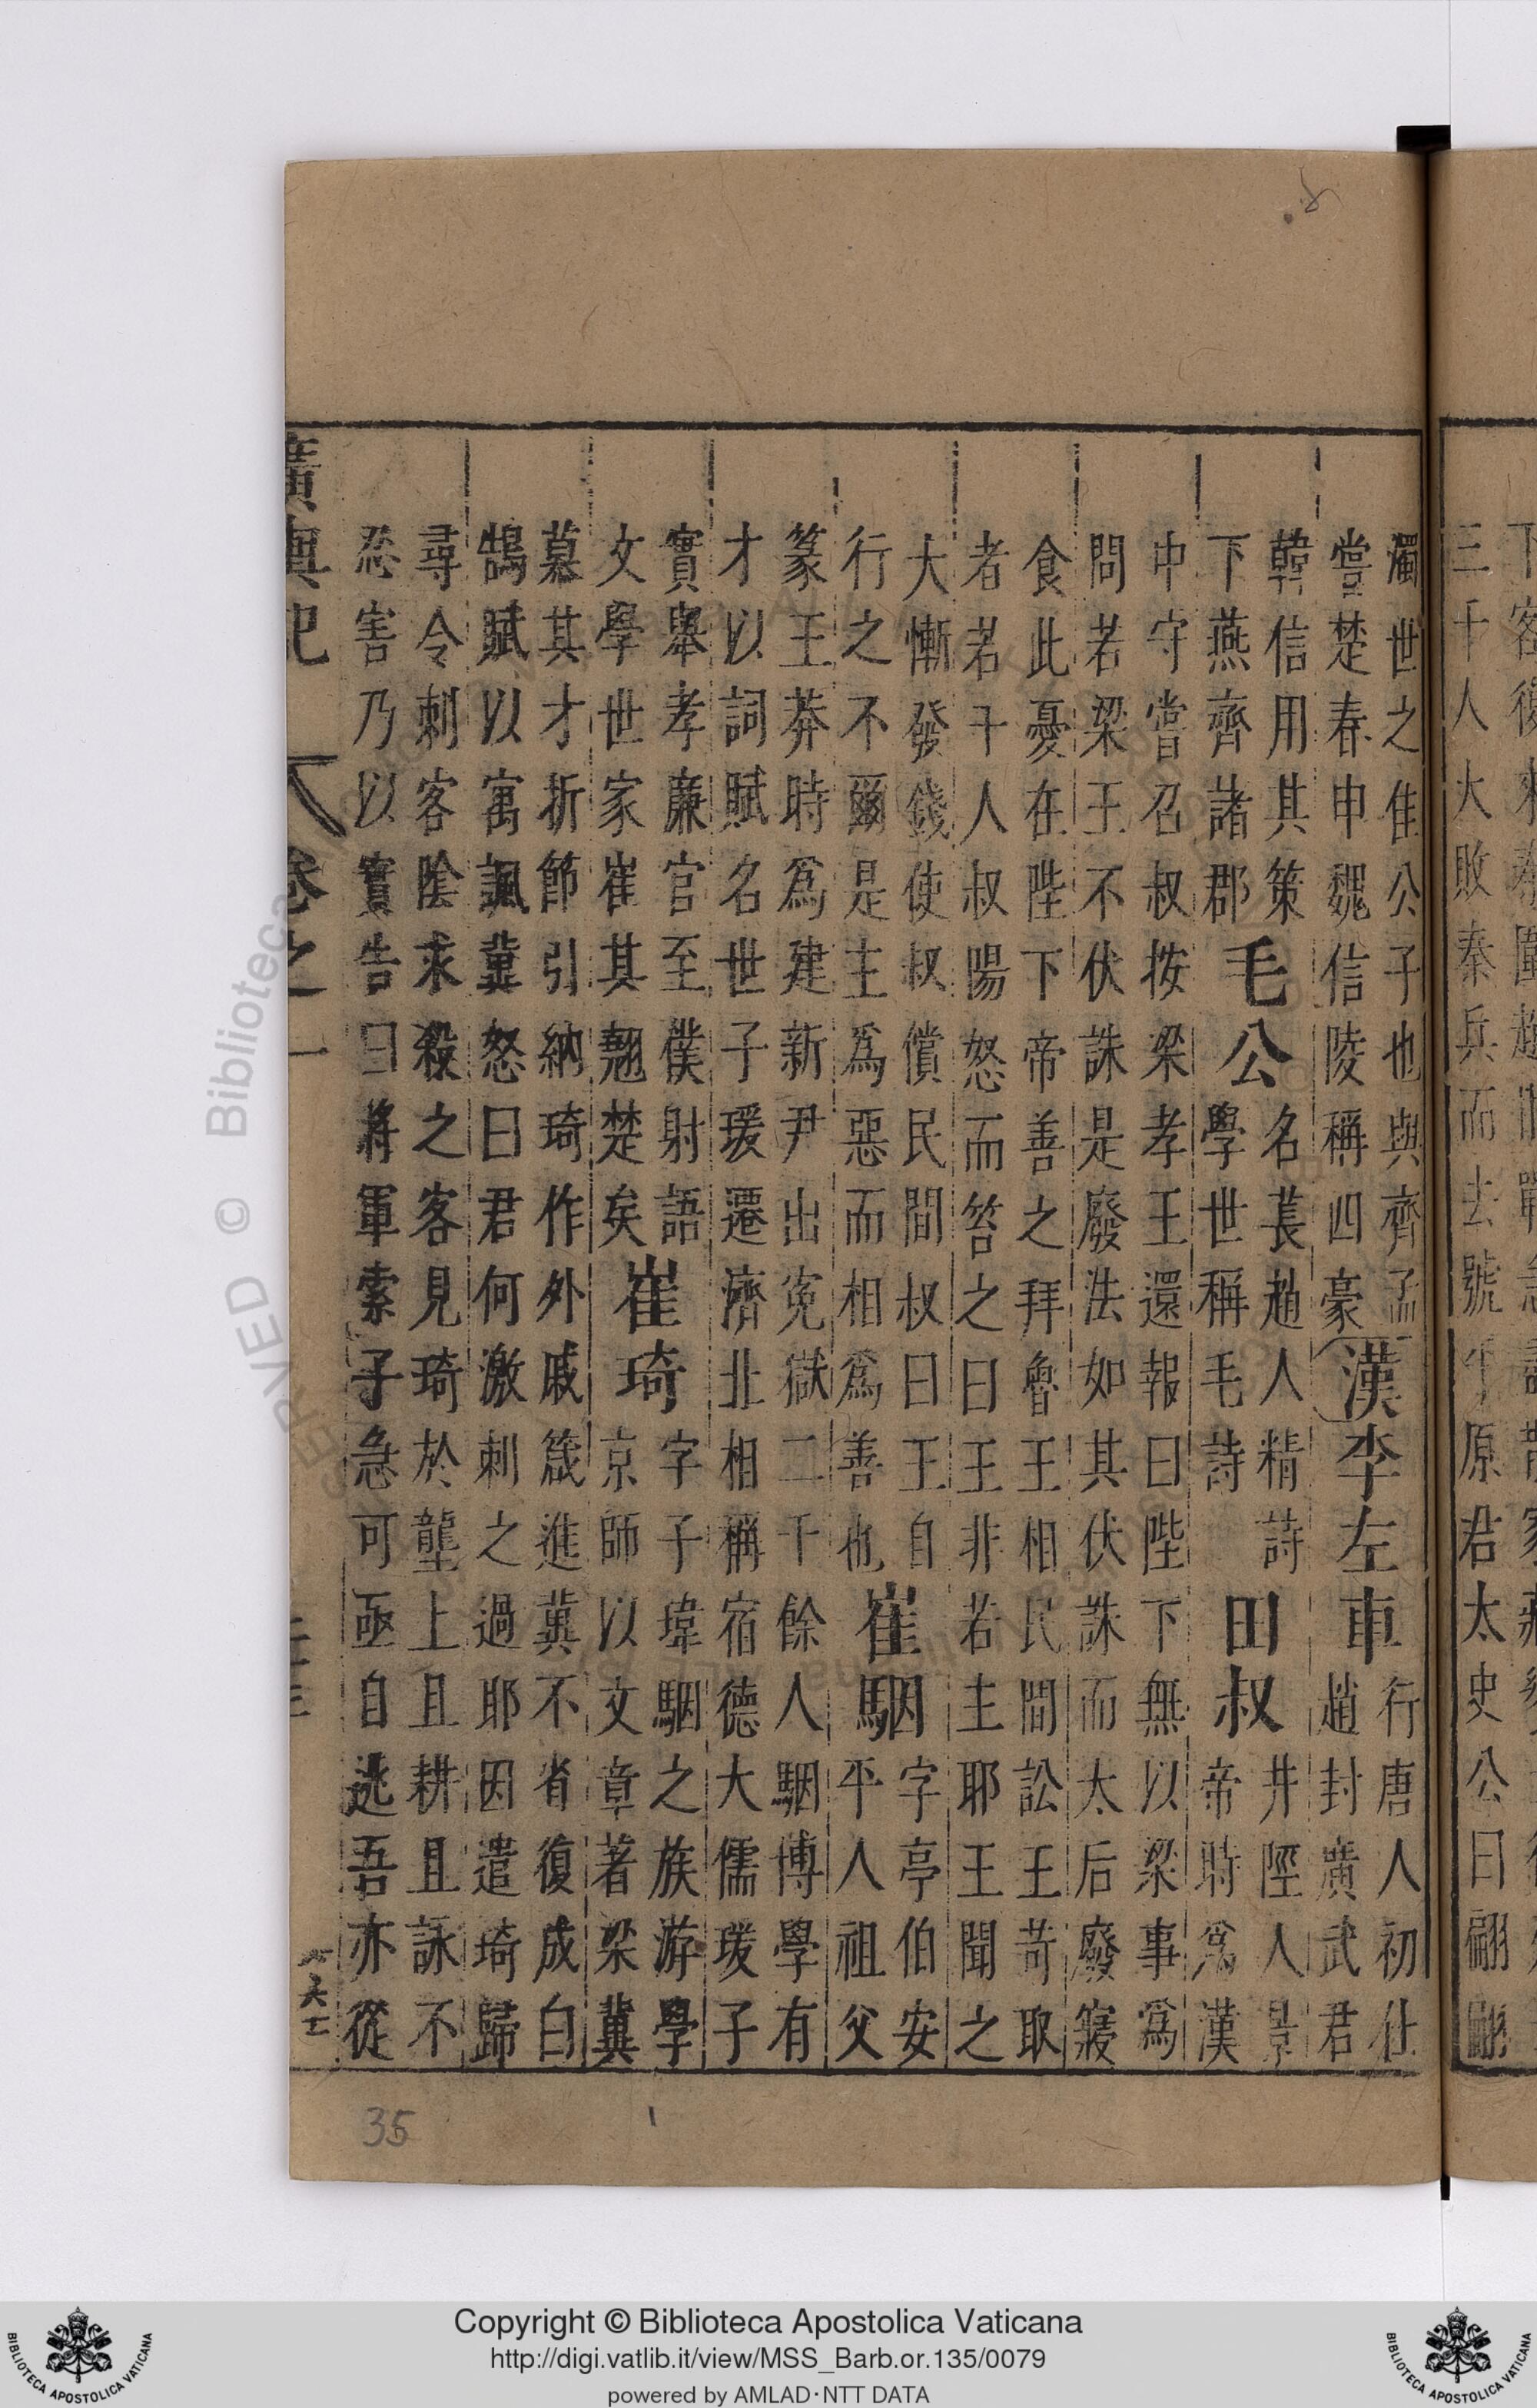 三千人大敗秦兵而去號平原君太史公曰翩翩
濁世之佳公子也與齊孟
嘗楚春申魏信陵稱四豪
漢李左車
行唐人初仕
趙封廣武君
韓信用其策
下燕齊諸郡
毛公
名萇趙人精詩
學世稱毛詩
田叔
井陘人景
帝時爲漢
中守嘗召叔按梁孝王還報曰陛下無以梁事爲
問若梁王不伏誅是廢法如其伏誅而太后廢寢
食此憂在陛下帝善之拜魯王相民間訟王苛取
者若干人叔陽怒而笞之曰王非若主耶王聞之
大慚發錢使叔償民間叔曰王自
行之不爾是主爲惡而相爲善也
崔駰
字亭伯安
平人祖父
篆王莽時爲建新尹出寃獄二千餘人駰博學有
才以詞賦名世子瑗遷濟北相稱宿德大儒瑗子
實舉孝廉官至僕射語
文學世家崔其翹楚矣
崔琦
字子瑋駰之族游學
京師以文章著梁冀
慕其才折節引納琦作外戚箴進冀不省復成白
鵠賦以寓諷冀怒曰君何激刺之過耶因遣琦歸
尋令刺客陰求殺之客見琦於壟上且耕且詠不
忍害乃以實告曰將軍索子急可亟自逃吾亦從
廣輿記 卷之一
35
© Biblioteca
Copyright © Biblioteca Apostolica Vaticana
http://digi.vatlib.it/view/MSS_Barb.or.135/0079
powered by AMLAD·NTT DATA
BIBLIOTECA APOSTOLICA VATICANA
BIBLIOTECA APOSTOLICA VATICANA